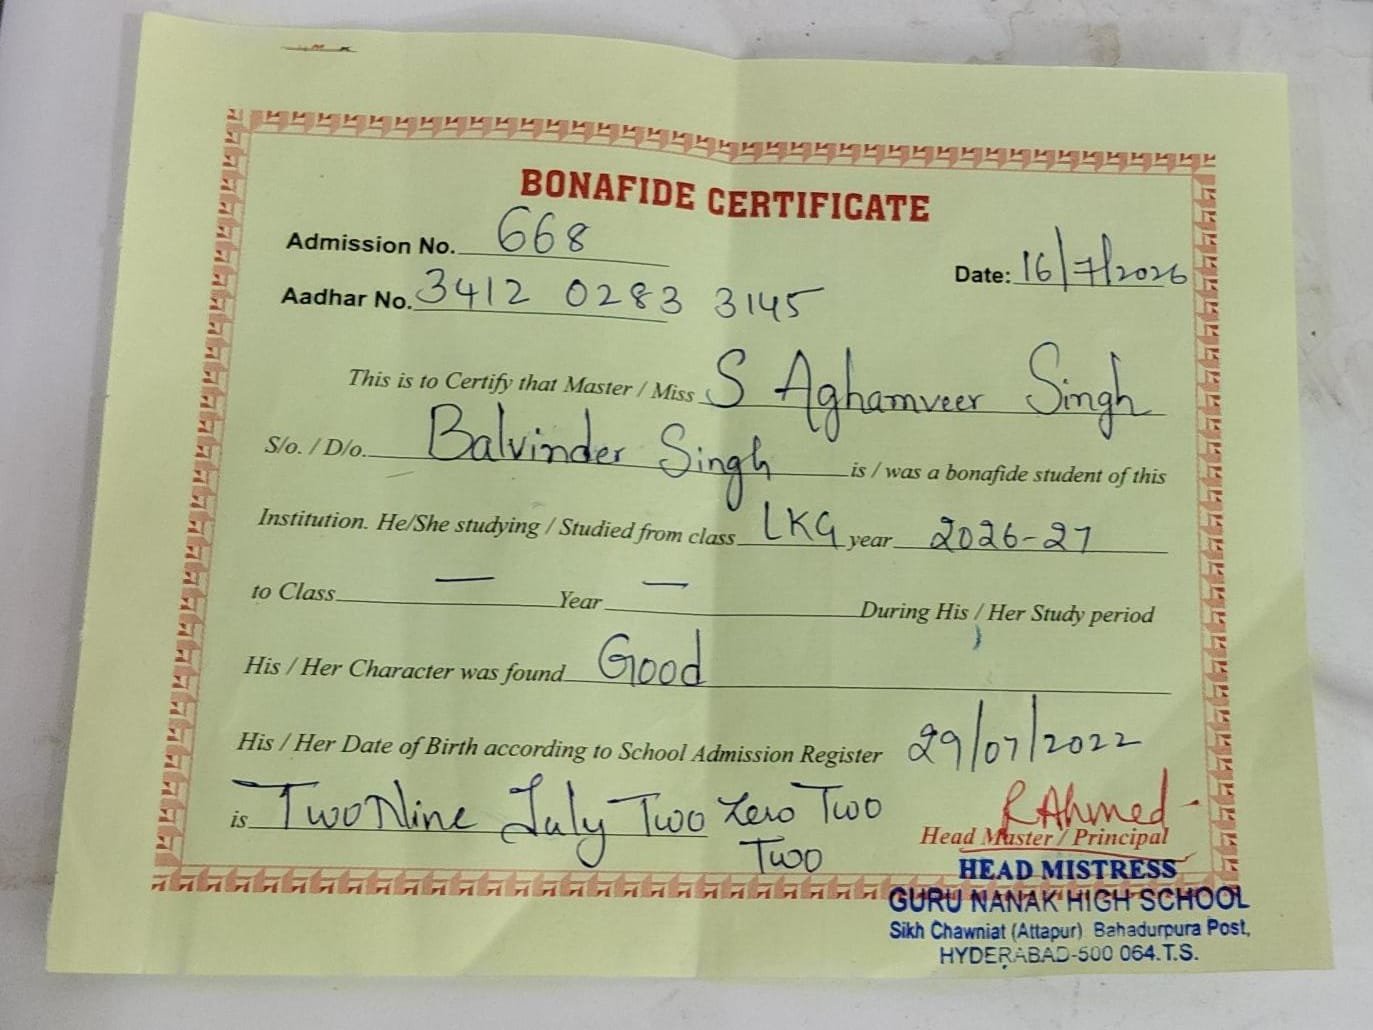 BONAFIDE CERTIFICATE
Admission No. 668
Date: 16/7/2026
Aadhar No. 3412 0283 3145
This is to Certify that Master / Miss S Aghamveer Singh
S/o. / D/o. Balvinder Singh is / was a bonafide student of this
Institution. He/She studying / Studied from class LKG year 2026-27
to Class — Year — During His / Her Study period
His / Her Character was found Good
His / Her Date of Birth according to School Admission Register 29/07/2022
is Two Nine July Two Zero Two
Two
RAhmed
Head Master / Principal
HEAD MISTRESS
GURU NANAK HIGH SCHOOL
Sikh Chawniat (Attapur) Bahadurpura Post,
HYDERABAD-500 064. T.S.